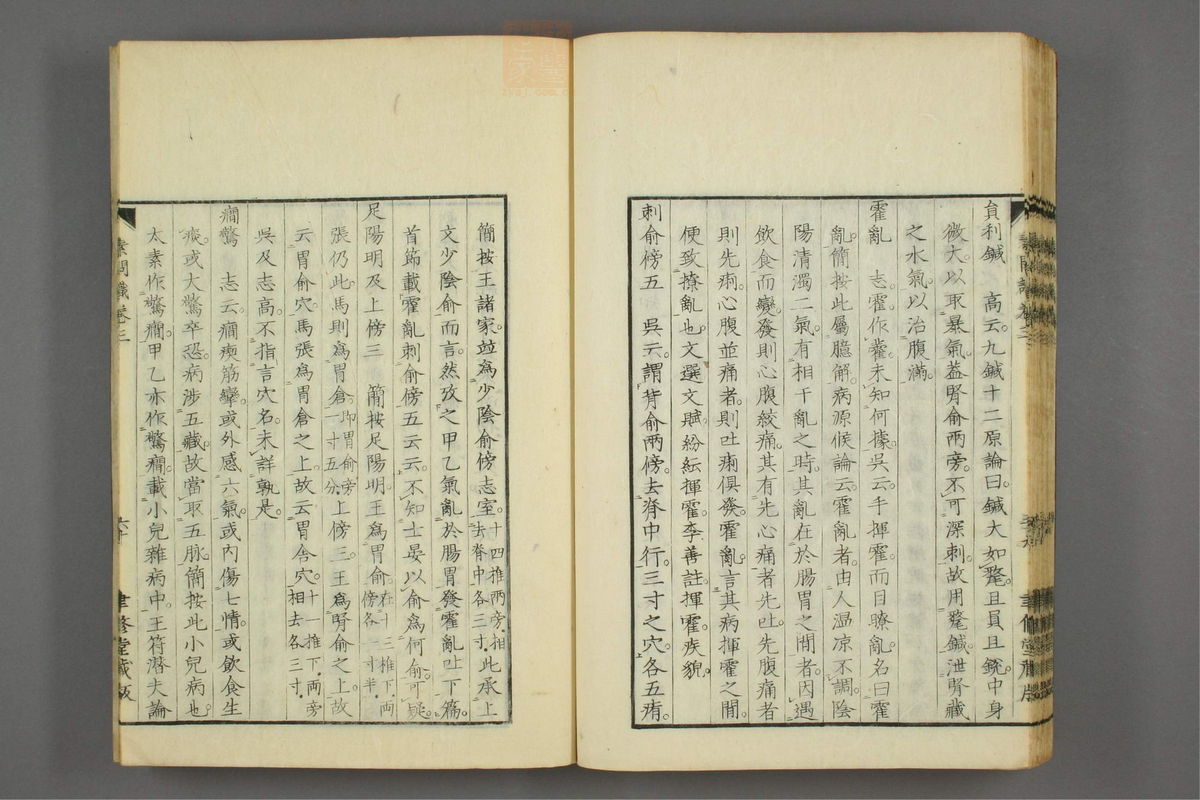 員利鍼　高云。九鍼十二原論曰。鍼大如氂。且員且銳。中身
微大。以取暴氣。蓋腎俞兩旁。不可深刺。故用氂鍼。泄腎藏
之水氣。以治腹滿。
霍亂　志霍作癨。未知何據。吳云。手揮霍而目瞭亂。名曰霍
亂。簡按此屬臆解。病源候論云。霍亂者。由人溫涼不調。陰
陽清濁二氣。有相干亂之時。其亂在於腸胃之間者。因遇
飲食而變發。則心腹絞痛。其有先心痛者先吐。先腹痛者
則先痢。心腹並痛者。則吐痢俱發。霍亂。言其病揮霍之間。
便致撩亂也。文選文賦。紛紜揮霍。李善註。揮霍。疾貌。
刺俞傍五　吳云。謂背俞兩傍。去脊中行三寸之穴。各五痏。
簡按王諸家。竝為少陰俞傍志室。十四推兩旁相去脊中各三寸。此承上
文少陰俞而言。然攷之甲乙氣亂於腸胃發霍亂吐下篇。
首節載霍亂刺俞傍五云云。不知士晏以俞為何俞。可疑。
足陽明及上傍三　簡按足陽明。王為胃俞。在十三推下兩傍各一寸半。
張仍此。馬則為胃倉。即胃俞旁一寸五分。上傍三。王為腎俞之上。故
云胃俞穴。馬張為胃倉之上。故云胃舍穴。十一推下。兩旁相去各三寸。
吳及志高。不指言穴名。未詳孰是。
癇驚　志云。癇瘈筋攣。或外感六氣。或內傷七情。或飲食生
痰。或大驚卒恐。病涉五藏。故當取五脉。簡按此小兒病也。
太素作驚癇。甲乙亦作驚癇。載小兒雜病中。王符潛夫論
素問識卷三
六十
聿修堂藏版